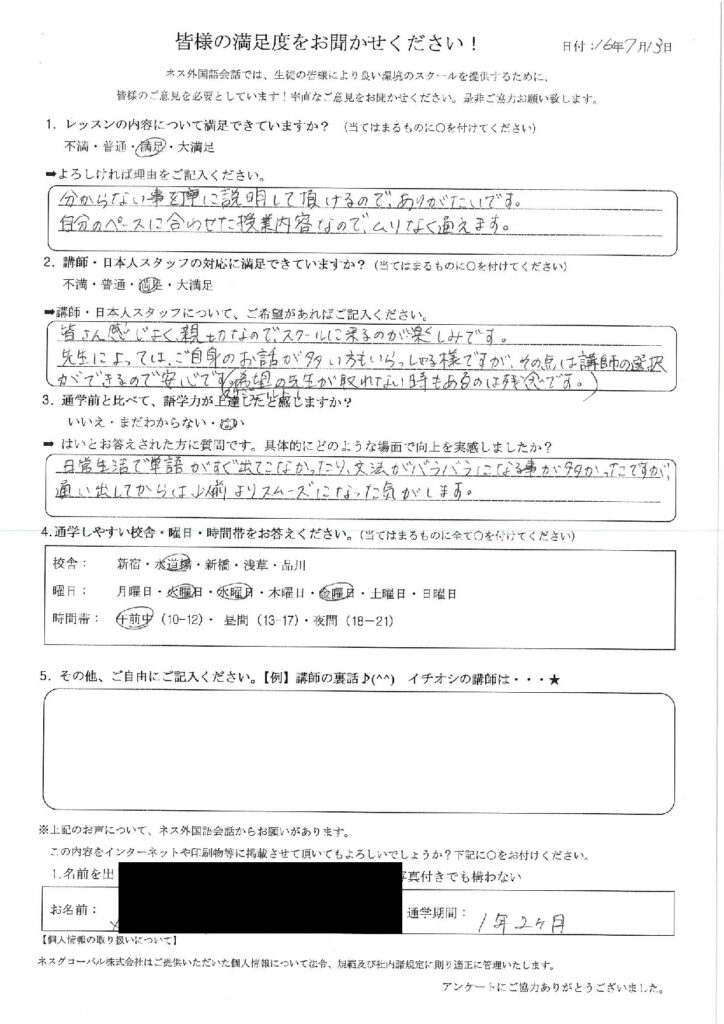 皆様の満足度をお聞かせください！
日付：16年7月13日
ネス外国語会話では、生徒の皆様により良い環境のスクールを提供するために、
皆様のご意見を必要としています！率直なご意見をお聞かせください。是非ご協力お願い致します。
1．レッスンの内容について満足できていますか？（当てはまるものに○を付けてください）
不満・普通・満足・大満足
➡よろしければ理由をご記入ください。
分からない事を丁寧に説明して頂けるので、ありがたいです。
自分のペースに合わせた授業内容なので、ムリなく通えます。
2．講師・日本人スタッフの対応に満足できていますか？（当てはまるものに○を付けてください）
不満・普通・満足・大満足
➡講師・日本人スタッフについて、ご希望があればご記入ください。
皆さん感じよく、親切なので、スクールに来るのが楽しみです。
先生によっては、ご自身のお話が多い方もいらっしゃる様ですが、その点は講師の選択
ができるので安心です（希望の先生が取れない時もあるのは残念です。）
3．通学前と比べて、語学力が上達したと感じますか？
いいえ・まだわからない・はい
➡ はいとお答えされた方に質問です。具体的にどのような場面で向上を実感しましたか？
日常生活で単語がすぐ出てこなかったり、文法がバラバラになる事が多かったですが、
通い出してからは以前よりスムーズになった気がします。
4.通学しやすい校舎・曜日・時間帯をお答えください。（当てはまるものに全て○を付けてください）
校舎： 新宿・水道橋・新橋・浅草・品川
曜日： 月曜日・火曜日・水曜日・木曜日・金曜日・土曜日・日曜日
時間帯： 午前中（10-12）・ 昼間（13-17）・夜間（18－21）
5．その他、ご自由にご記入ください。【例】講師の裏話♪(^^) イチオシの講師は・・・★
※上記のお声について、ネス外国語会話からお願いがあります。
この内容をインターネットや印刷物等に掲載させて頂いてもよろしいでしょうか？下記に○をお付けください。
1.名前を出 写真付きでも構わない
お名前： 通学期間： 1年2ヶ月
【個人情報の取り扱いについて】
ネスグローバル株式会社はご提供いただいた個人情報について法令、規範及び社内諸規定に則り適正に管理いたします。
アンケートにご協力ありがとうございました。